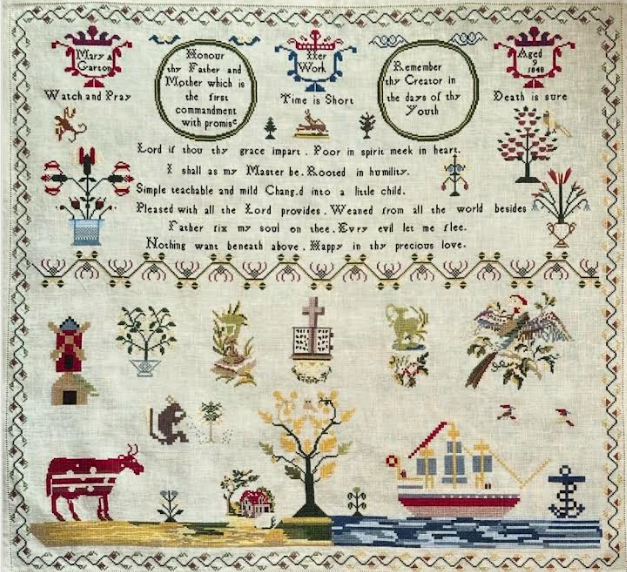 Mary a
Garton
Honour
thy Father and
Mother which is
the first
commandment
with promise
Her
Work
Remember
thy Creator in
the days of thy
Youth
Aged
9
1848
Watch and Pray
Time is Short
Death is sure
Lord if thou thy grace impart. Poor in spirit meek in heart.
I shall as my Master be. Rooted in humility.
Simple teachable and mild Chang.d into a little child.
Pleased with all the Lord provides. Weaned from all the world besides
Father fix my soul on thee. Evry evil let me flee.
Nothing want beneath above. Happy in thy precious love.